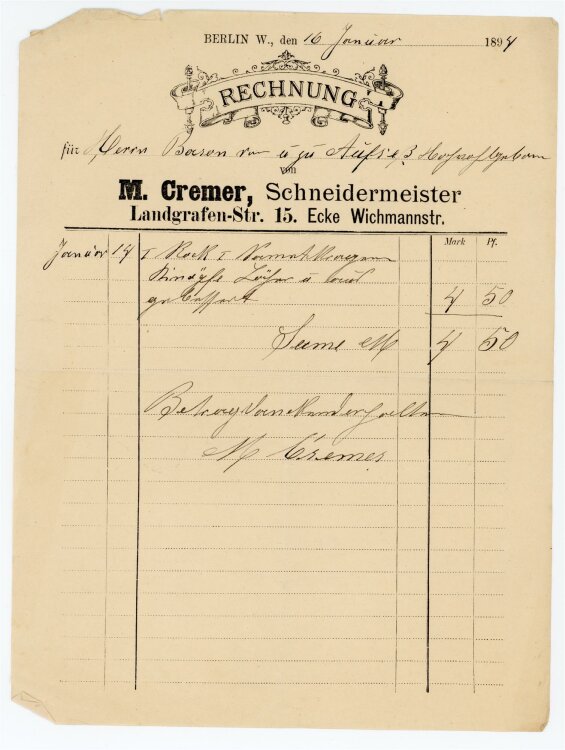 BERLIN W., den 16 Januar 1894
RECHNUNG
für Herrn Baron von u zu Aufseß Hochwohlgeboren
von
M. Cremer, Schneidermeister
Landgrafen-Str. 15. Ecke Wichmannstr.
Mark Pf.
Januar 14 1 Rock 1 Samatkragen
Knöpfe Löcher u
gebessert 4 50
Sume M 4 50
Betrag dankend erhalten
M Cremer